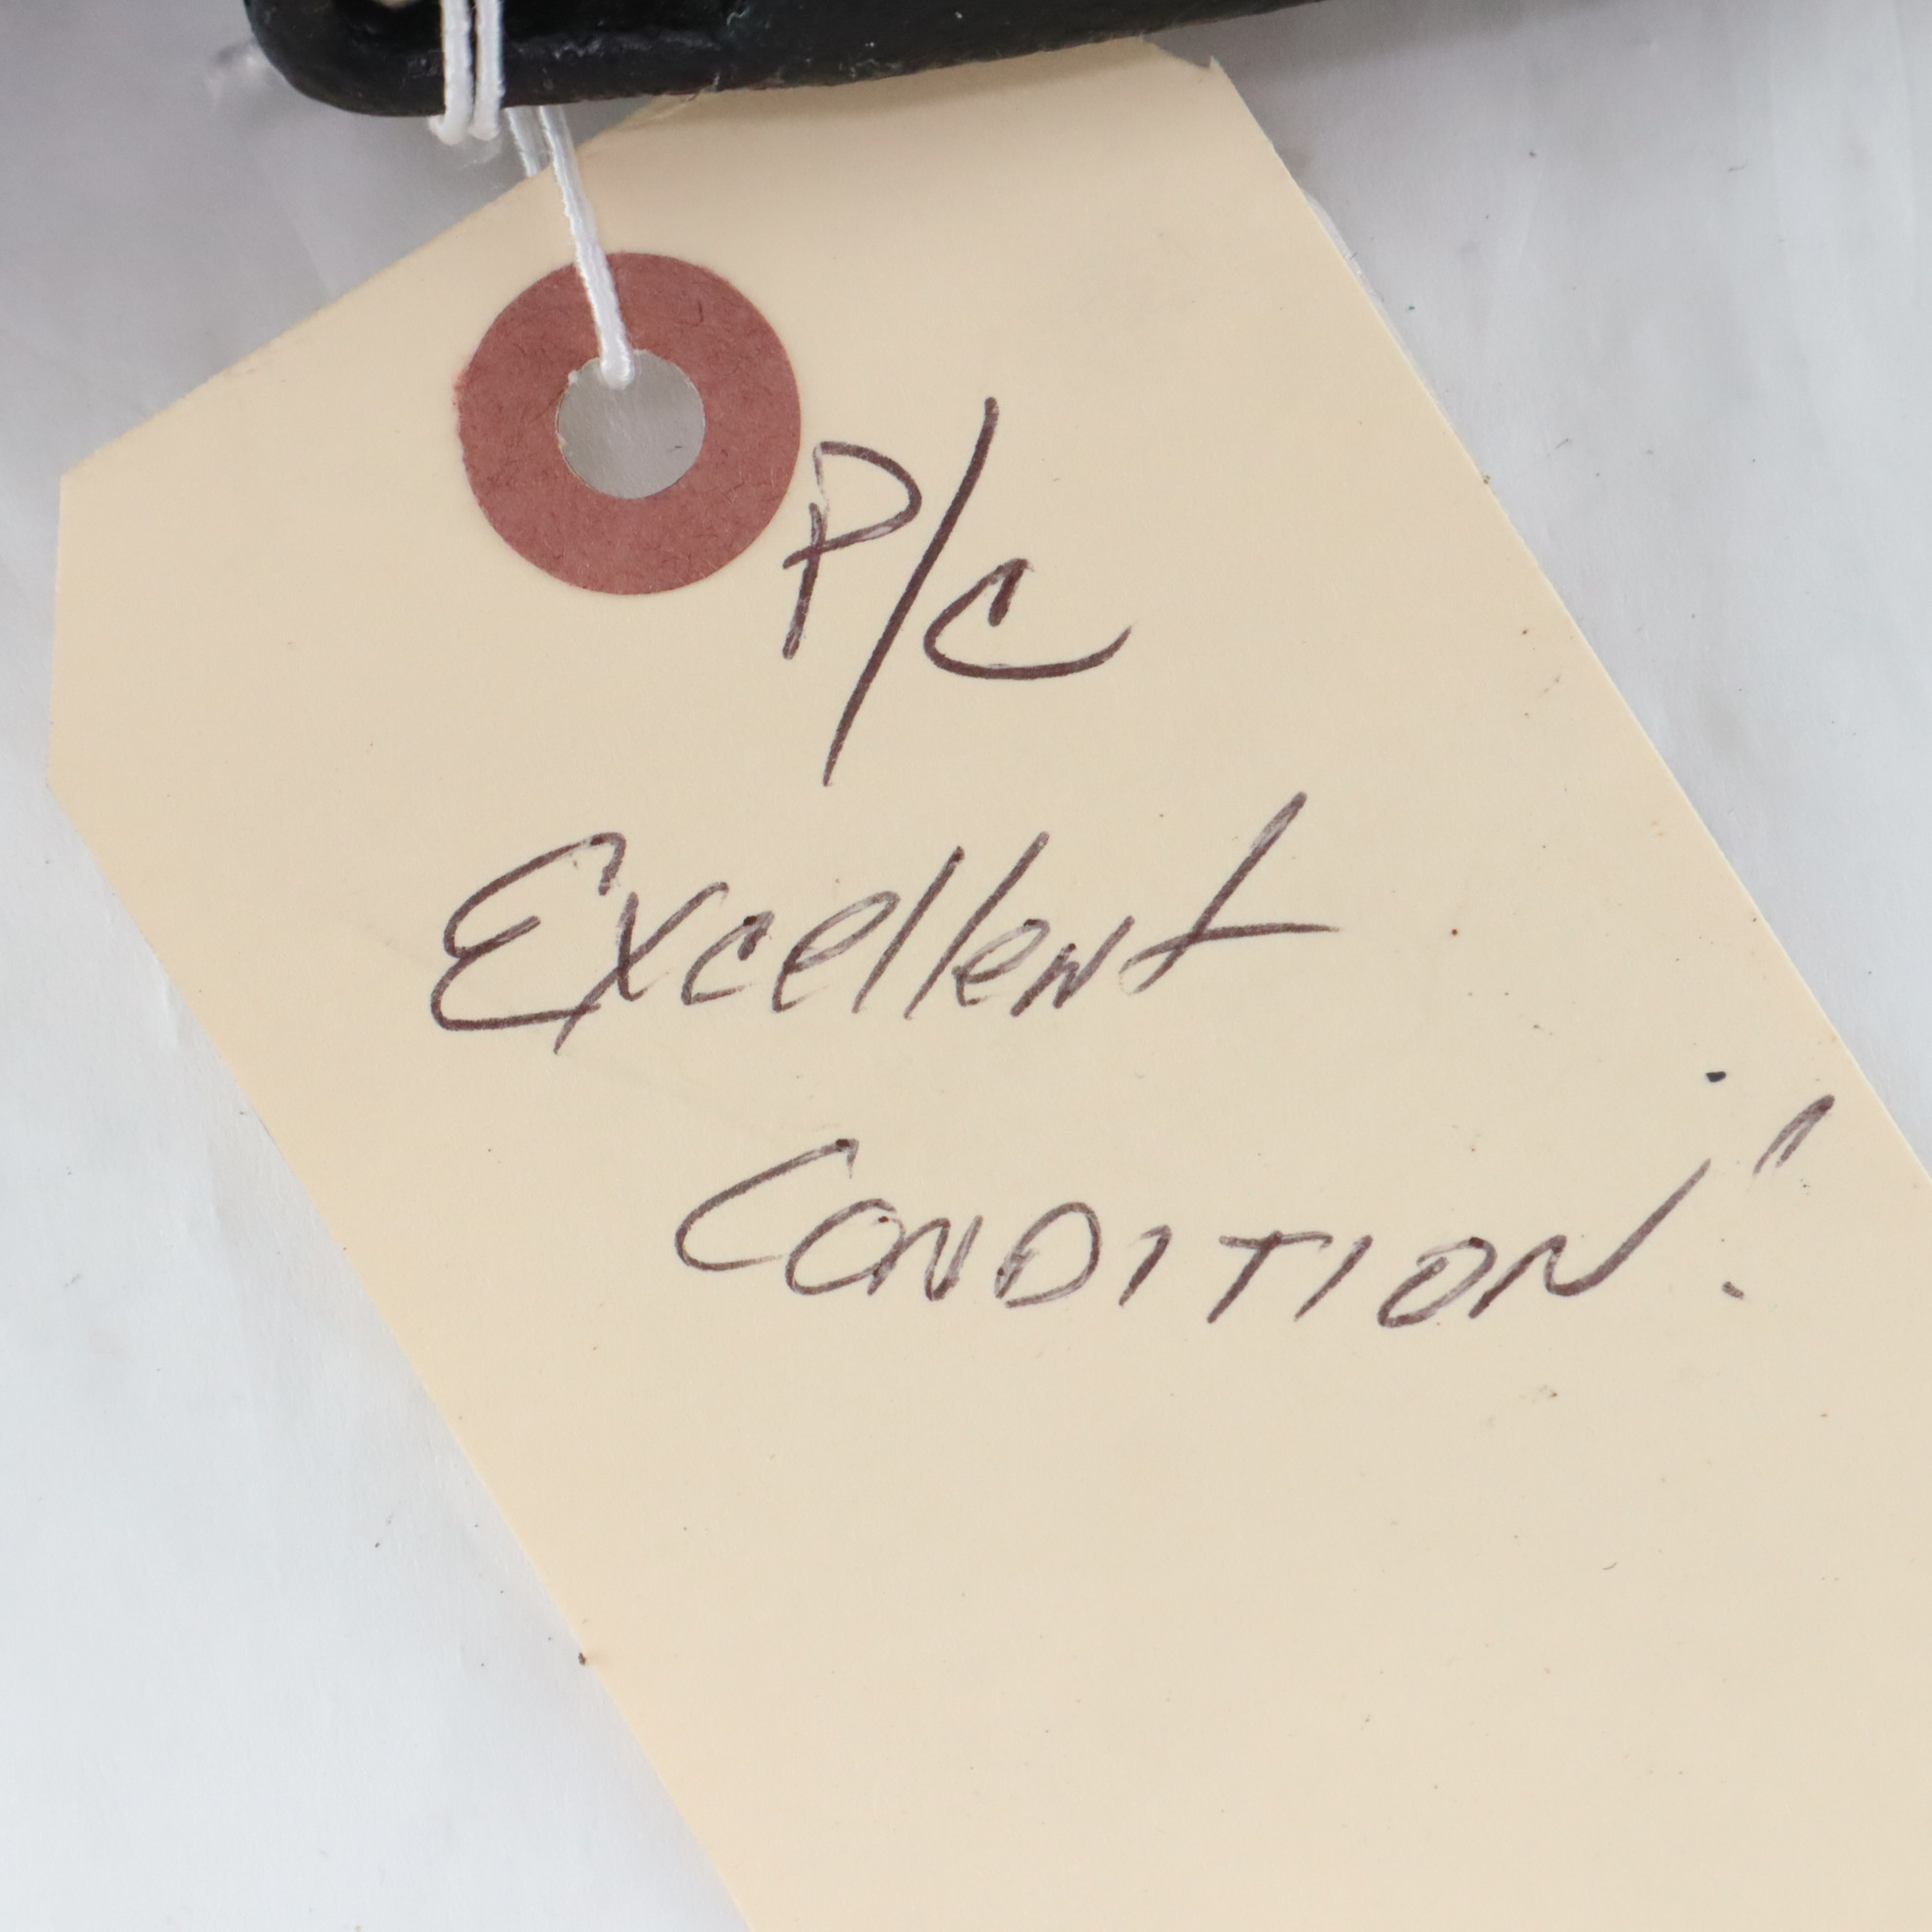 P/C
Excellent
CONDITION!